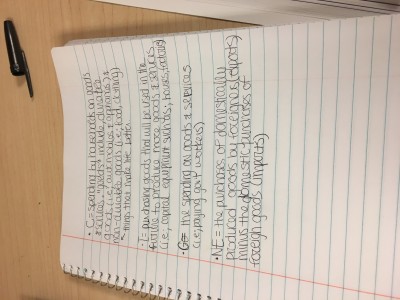 • C = spending by households on goods
& services, "goods" include durable
goods (i.e; automobiles & appliances) &
non-durable goods (i.e; food, clothing)
& things that make life better.
I = purchasing goods that will be used in the
future to produce more goods & services
(i.e; capital equipment, houses, factories)
• G = the spending on goods & services
(i.e; paying gov't workers)
• NE = the purchases of domestically
produced goods by foreigners (exports)
minus the domestic purchases of
foreign goods (imports)